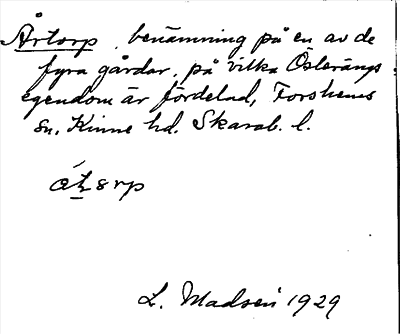 Årtorp, benämning på en av de
fyra gårdar, på vilka Österängs
egendom är fördelad, Forshems
sn, Kinne hd. Skarab. l.
L. Madsén 1929